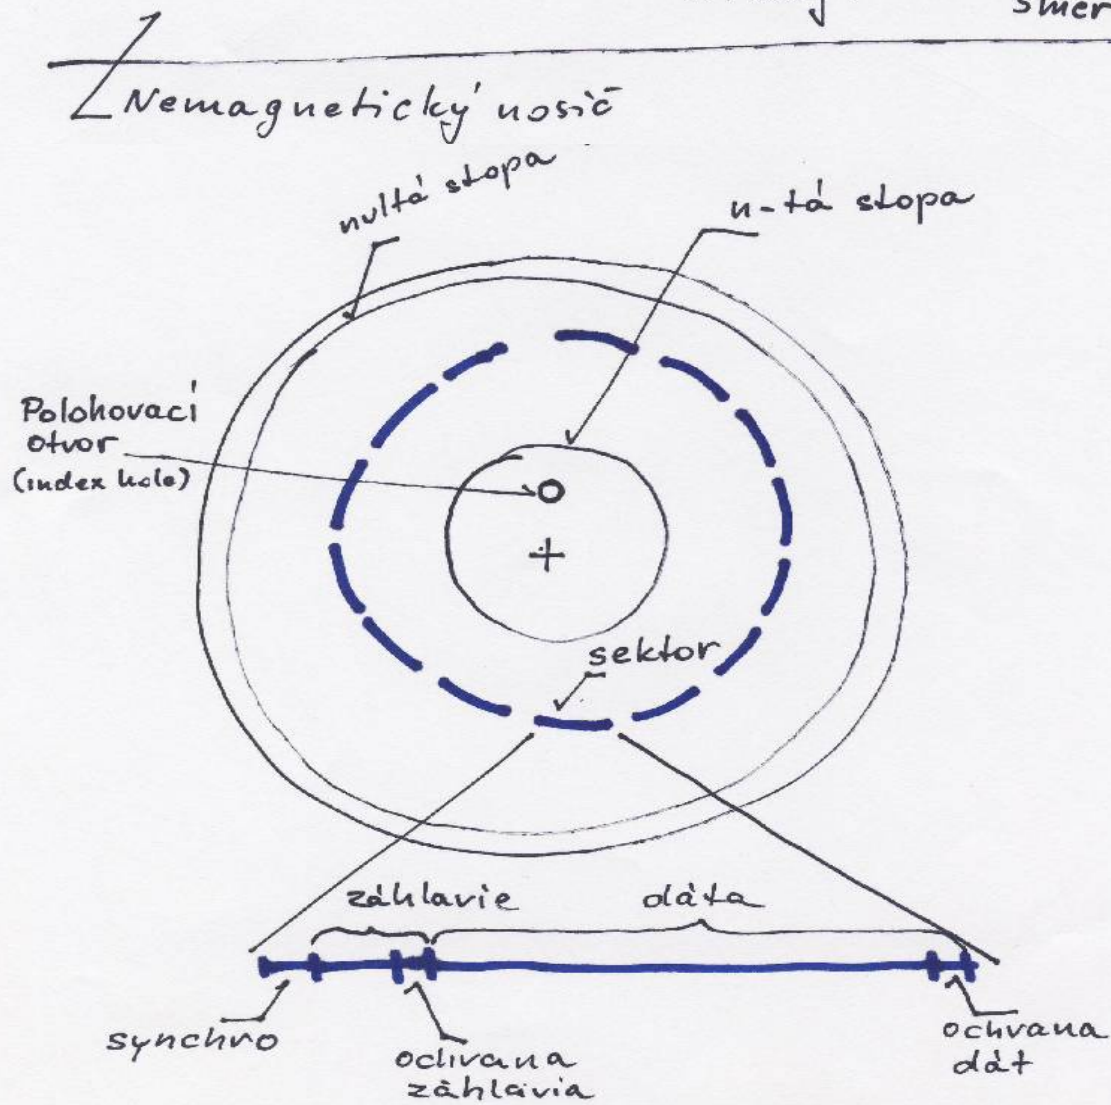 smer
Nemagnetický nosič
nultá stopa
n-tá stopa
Polohovací
otvor
(index hole)
sektor
záhlavie
dáta
synchro
ochrana
záhlavia
ochrana
dát